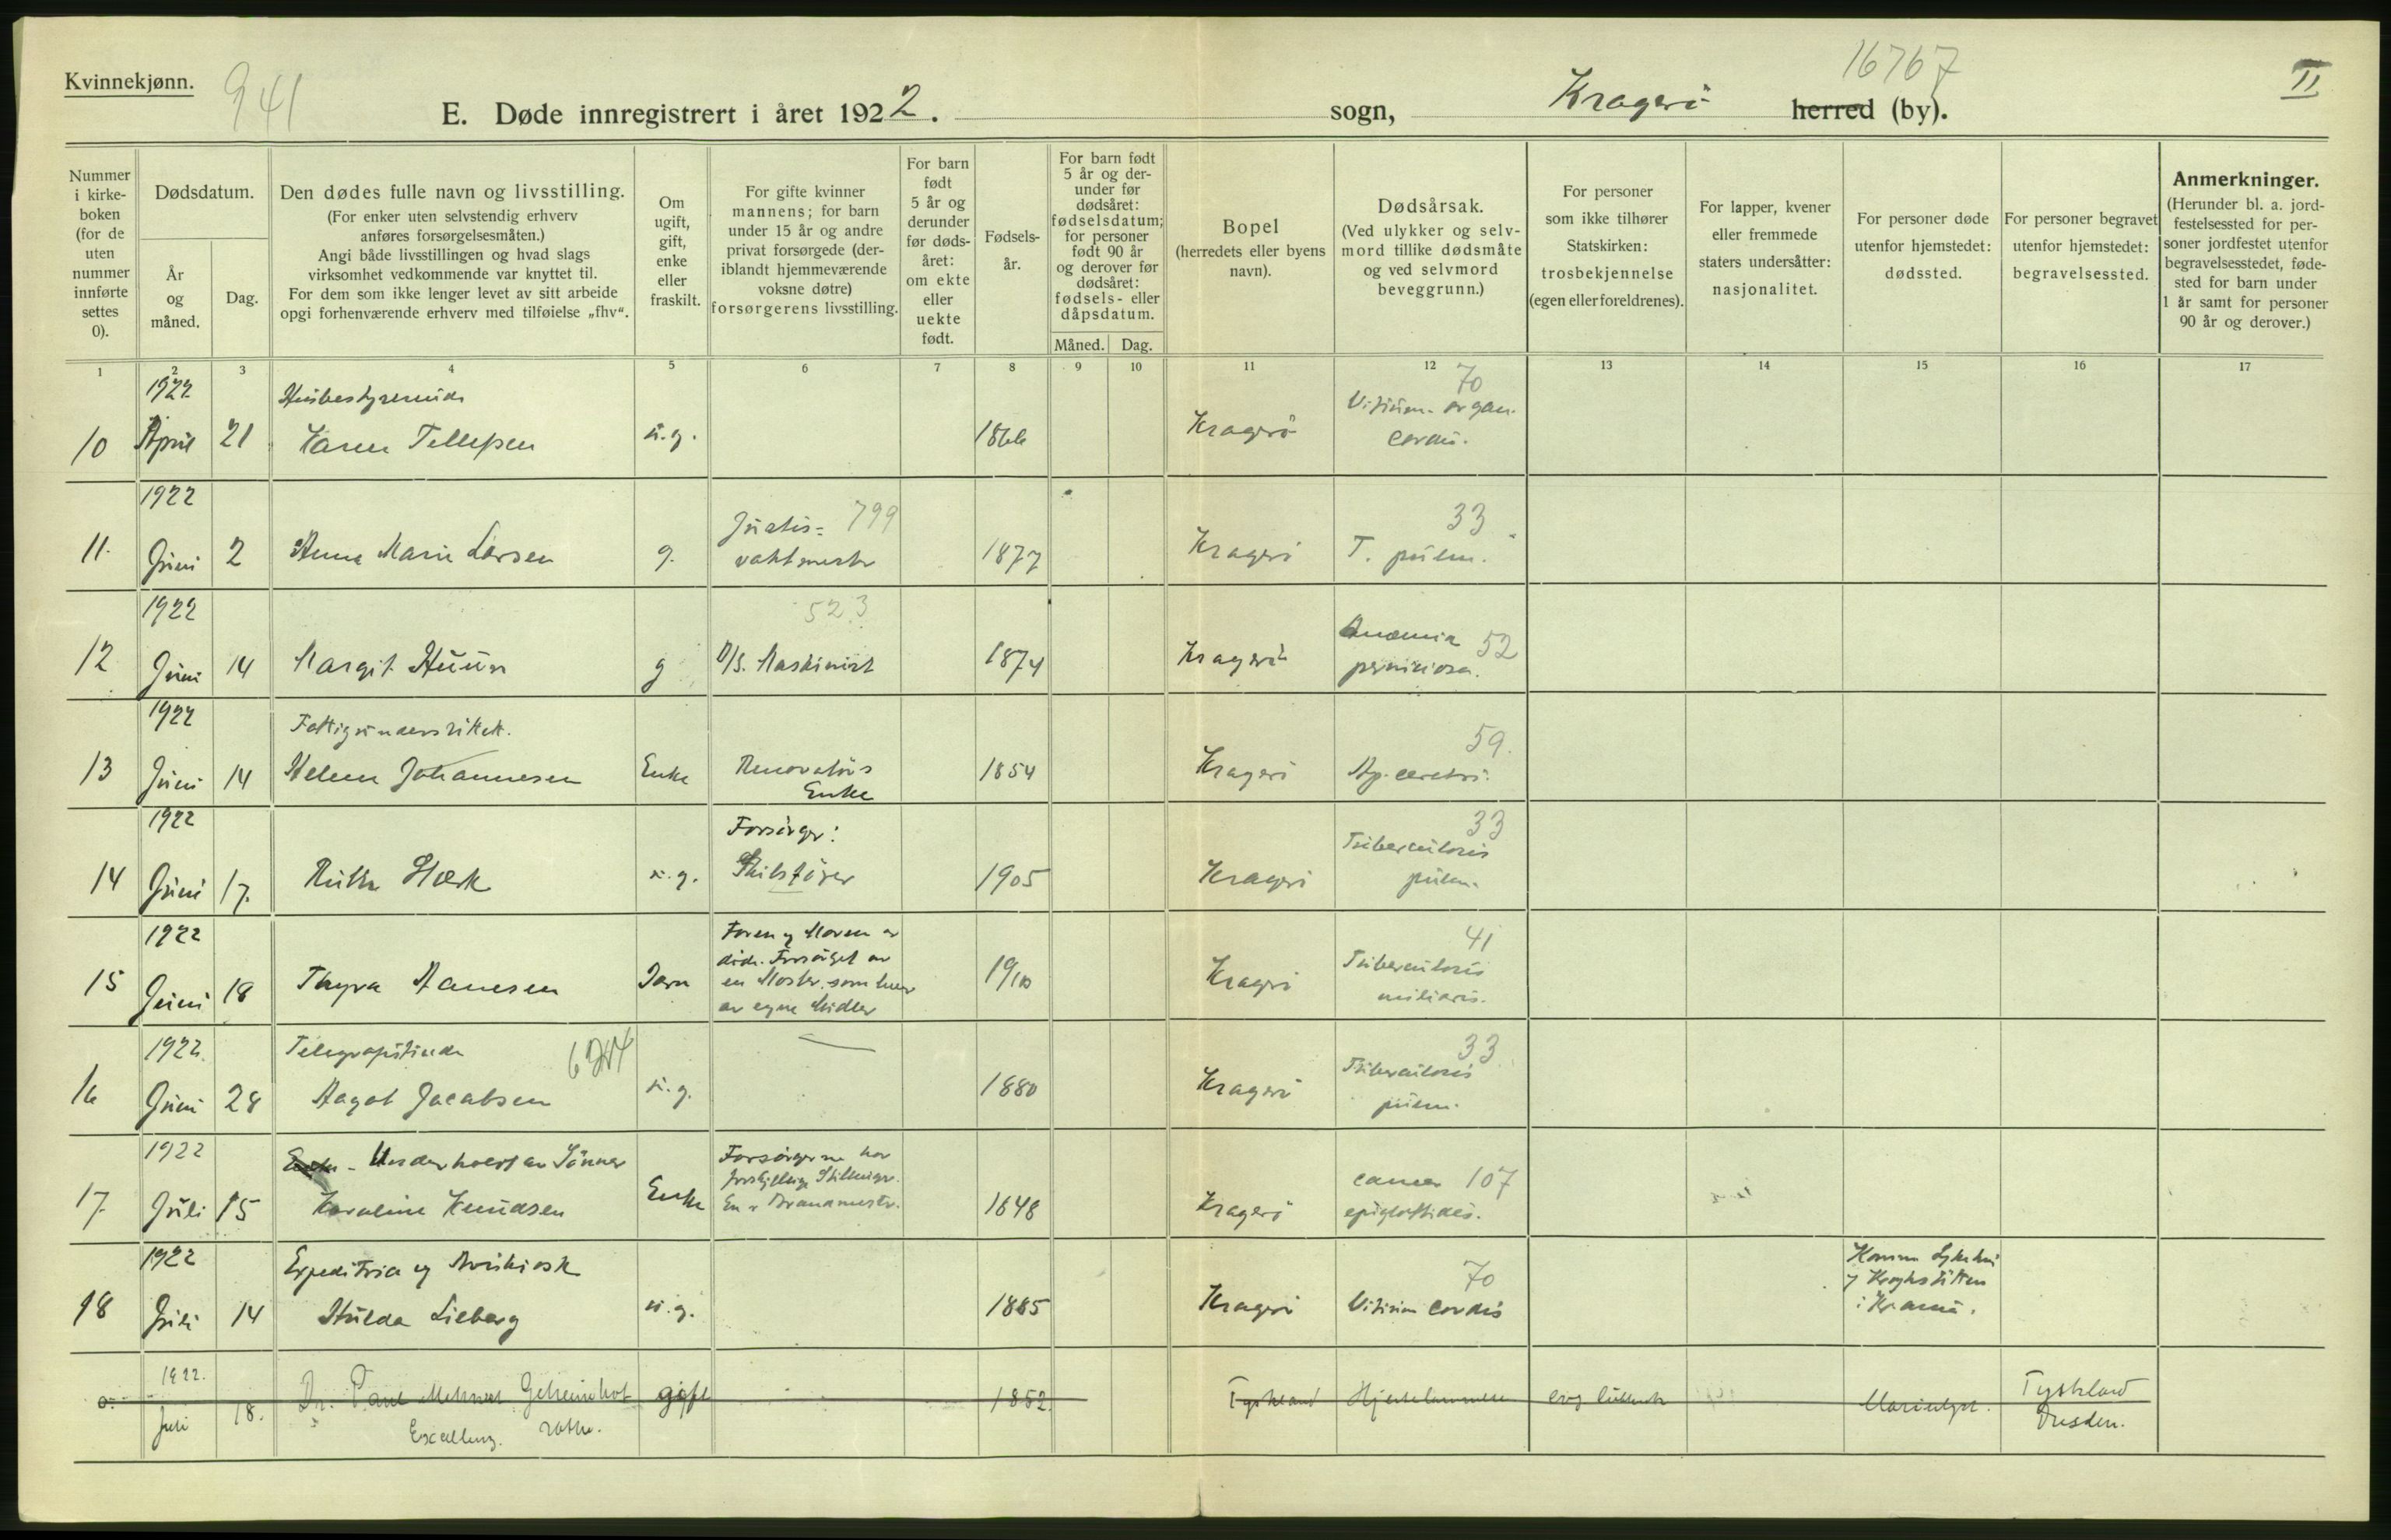 Kvinnekjønn.
941
16767
II
E. Døde innregistrert i året 1922. sogn, Kragerö herred (by).
Nummer i kirkeboken (for de uten nummer innførte settes 0).
Dødsdatum.
År og måned.
Dag.
Den dødes fulle navn og livsstilling.
(For enker uten selvstendig erhverv anføres forsørgelsesmåten.)
Angi både livsstillingen og hvad slags virksomhet vedkommende var knyttet til.
For dem som ikke lenger levet av sitt arbeide opgi forhenværende erhverv med tilføielse „fhv“.
Om ugift, gift, enke eller fraskilt.
For gifte kvinner mannens; for barn under 15 år og andre privat forsørgede (deriblandt hjemmeværende voksne døtre) forsørgerens livsstilling.
For barn født 5 år og derunder før dødsåret: om ekte eller uekte født.
Fødselsår.
For barn født 5 år og derunder før dødsåret: fødselsdatum; for personer født 90 år og derover før dødsåret: fødsels- eller dåpsdatum.
Måned. Dag.
Bopel
(herredets eller byens navn).
Dødsårsak.
(Ved ulykker og selvmord tillike dødsmåte og ved selvmord beveggrunn.)
For personer som ikke tilhører Statskirken: trosbekjennelse (egen eller foreldrenes).
For lapper, kvener eller fremmede staters undersåtter: nasjonalitet.
For personer døde utenfor hjemstedet: dødssted.
For personer begravet utenfor hjemstedet: begravelsessted.
Anmerkninger.
(Herunder bl. a. jordfestelsessted for personer jordfestet utenfor begravelsesstedet, fødested for barn under 1 år samt for personer 90 år og derover.)
1 2 3 4 5 6 7 8 9 10 11 12 13 14 15 16 17
1922 Husbestyrerinde 70
10 April 21 Karen Tellefsen u.g. 1866 Kragerö Vitium organ. cordis.
1922 Justis= 799 33
11. Juni 2 Anna Marie Larsen g. vaktmester 1877 Kragerö T. pulm.
1922 523
12 Juni 14 Margit Huun g D/S. Maskinist 1874 Kragerö Anæmia perniciosa. 52
1922 Fattigunderstöttet. 59.
13 Juni 14 Helene Johannesen Enke Renovatörs Enke 1854 Kragerö Ap. cerebri.
1922 Forsörger: 33
14 Juni 17. Ruth Stærk u.g. 1905 Kragerö Tuberculosis pulm.
1922 Faren og Moren er döde. Forsörget av en Moster som lever av egne Midler 41
15 Juni 18 Thyra Aanesen Barn 1910 Kragerö Tuberculosis miliaris.
1922. Telegrafistinde 33
16 Juni 28 Aagot Jacobsen u.g. 1880 Kragerö Tuberculosis pulm.
1922 Enke - Underholdt av Sönner Forsörgerne har forskjellige Stillinger. En er Brandmester.
17. Juli 15 Karoline Knudsen Enke 1848 Kragerö cancer 107 epiglottidis.
1922 Expeditrice og Aviskiosk 70 Komm. Sykehus
18 Juli 14 Hulda Lieberg u.g. 1885 Kragerö Vitium cordis
1922.
0. Juli 18. Dr. Paul Mehnert Geheimhofrath. Excellenz. gift 1852. Tyskland Hjertelammelse evg. luthersk Tyskland Dresden.